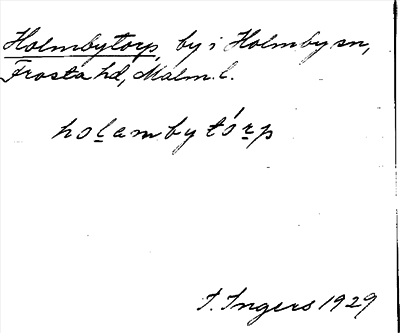 Holmbytorp, by i Holmby sn,
Frosta hd, Malm. l.
holambytórp
I. Ingers 1929